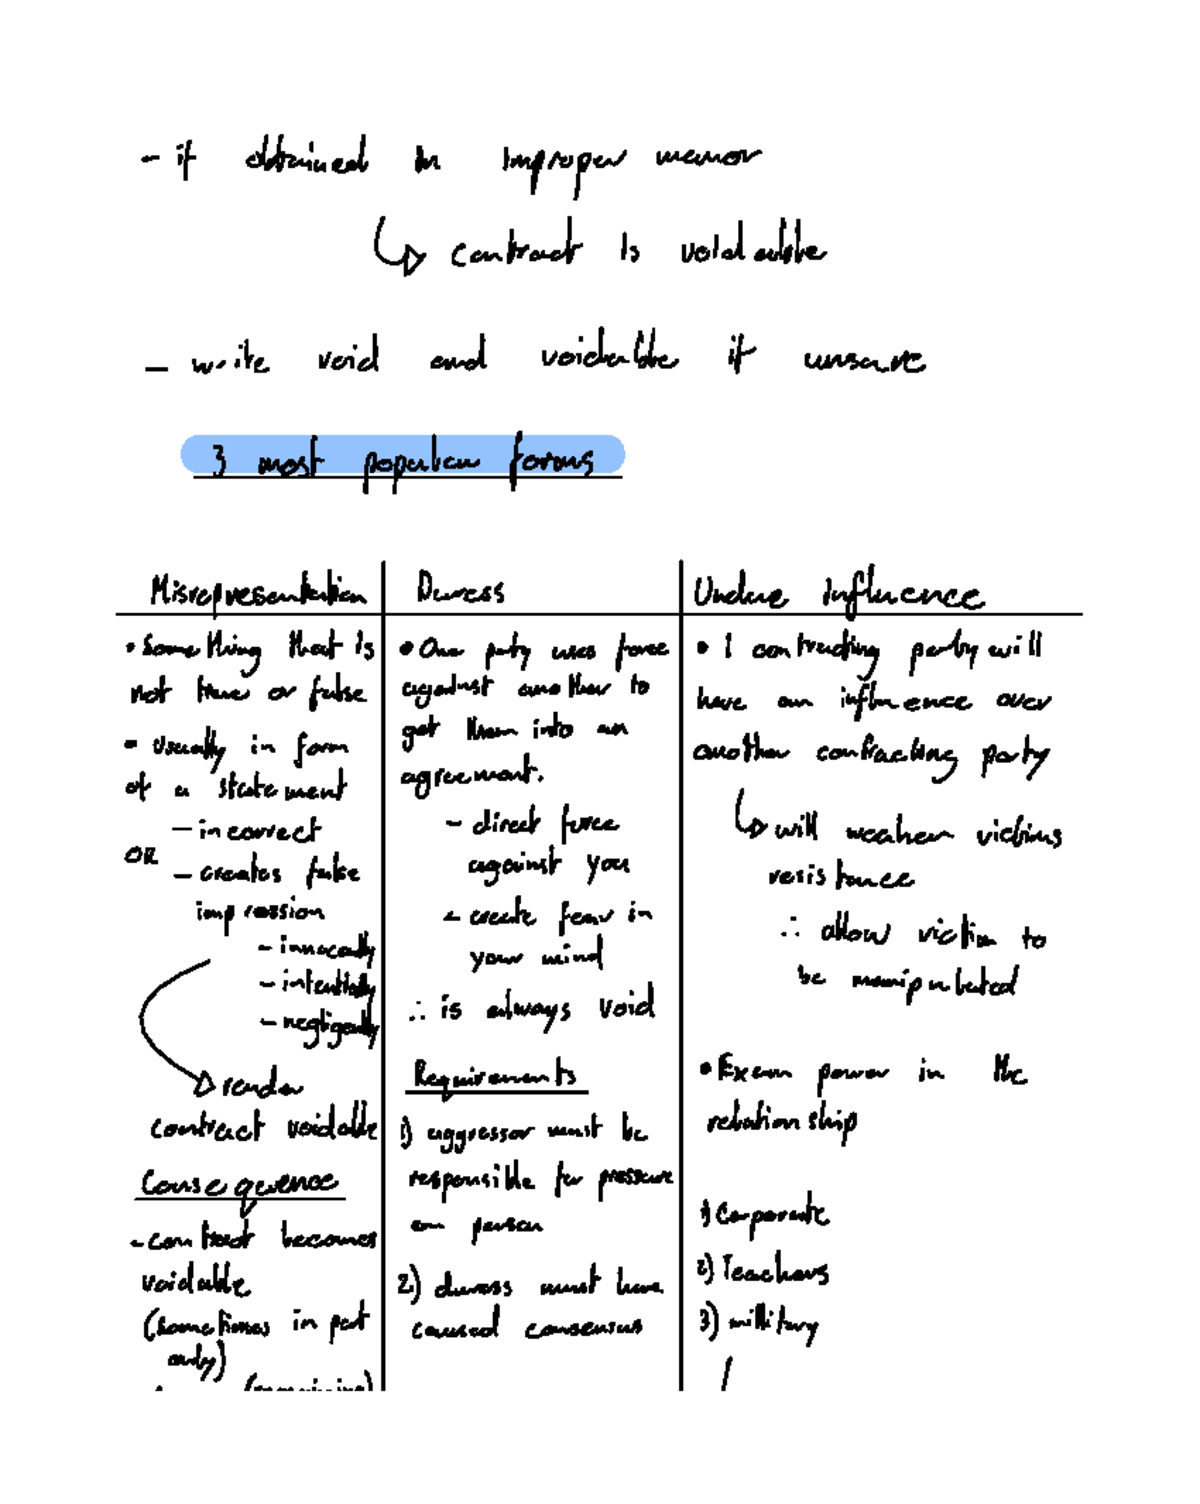 - if obtained in improper manor
contract is voidable
- write void and voidable if unsure
3 most popular forms
Misrepresentation
• Something that is
not true or false
• Usually in form
of a statement
- incorrect
OR
- creates false
impression
- innocently
- intentially
- negligently
render
contract voidable
Consequence
- contract becomes
voidable
(sometimes in part
only)
Duress
• One party uses force
against another to
get them into an
agreement.
- direct force
against you
- create fear in
your mind
∴ is always void
Requirements
1) aggressor must be
responsible for pressure
on person
2) duress must have
caused consensus
Undue influence
• 1 contracting party will
have an influence over
another contracting party
will weaken victims
resistance
∴ allow victim to
be manipulated
• Exam power in the
relationship
1) Corporate
2) Teachers
3) millitary